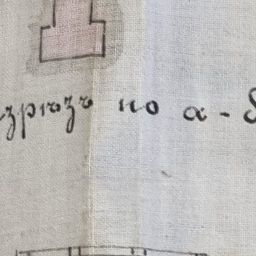 зрѣзъ по а - б